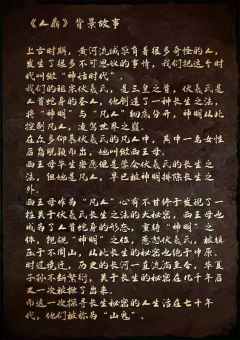 《人鼎》背景故事
上古时期，黄河流域孕育着很多奇怪的人，
发生了很多不可思议的事情，我们把这个时
代叫做“神话时代”。
我们的祖宗伏羲氏，是三皇之首，伏羲氏是
人首蛇身的圣人，他创造了一种长生之法，
将“神明”与“凡人”彻底分开，神明从此
控制凡人，凌驾世界之巅。
在众多仰慕伏羲氏的凡人中，其中一名女性
后裔脱颖而出，他叫做西王母。
西王母毕生夙愿便是学会伏羲氏的长生之
法，但她是凡人，早已被神明排除长生之
外。
西王母作为“凡人”心有不甘终于发现了一
性关于伏羲氏长生之法的大秘密，西王母也
成为了人首蛇身的形态，重铸“神明”之
体，觊觎“神明”之位，惹怒伏羲氏，被镇
压于不周山，从此长生的秘密也绝于中原。
时过境迁，历史的长河一直流淌至今，华夏
子孙不断繁衍，关于长生的秘密在几千年后
又一次被掀了出来。
而这一次探寻长生秘密的人生活在七十年
代，他们被称为“山鬼”。